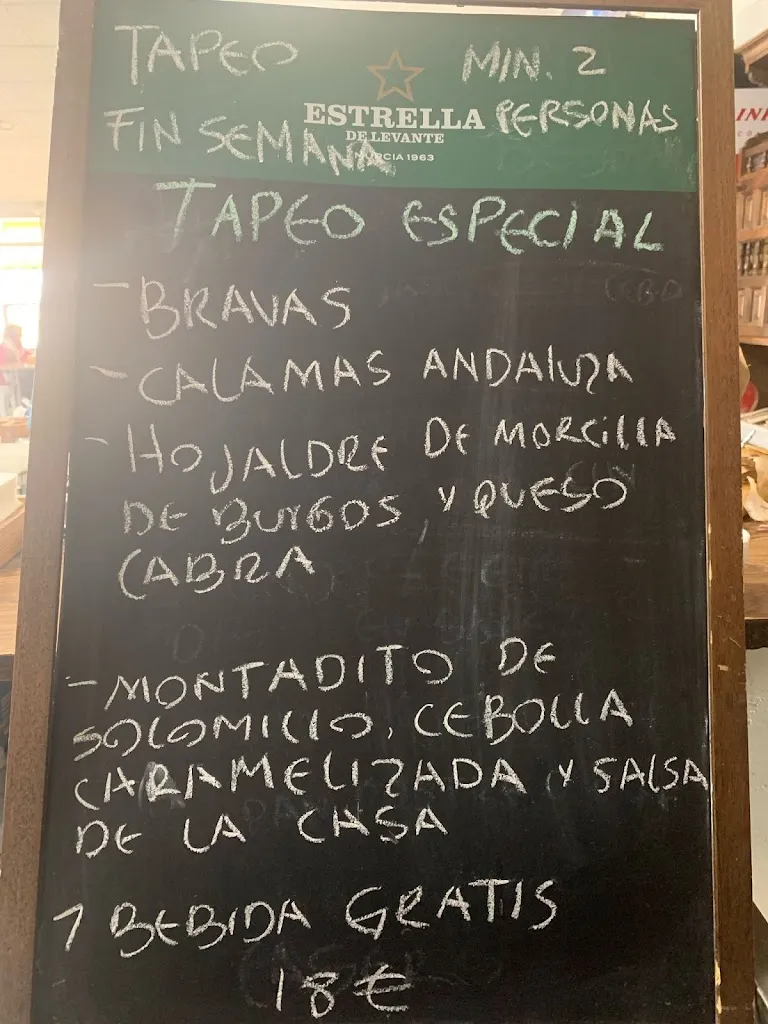 TAPEO MIN. 2
ESTRELLA PERSONAS
DE LEVANTE
FIN SEMANA
MURCIA 1963
TAPEO ESPECIAL
- BRAVAS
- CALAMAS ANDALUZA
- HOJALDRE DE MORCILLA
DE BURGOS Y QUESO
CABRA
- MONTADITO DE
SOLOMILLO, CEBOLLA
CARAMELIZADA Y SALSA
DE LA CASA
1 BEBIDA GRATIS
18 €